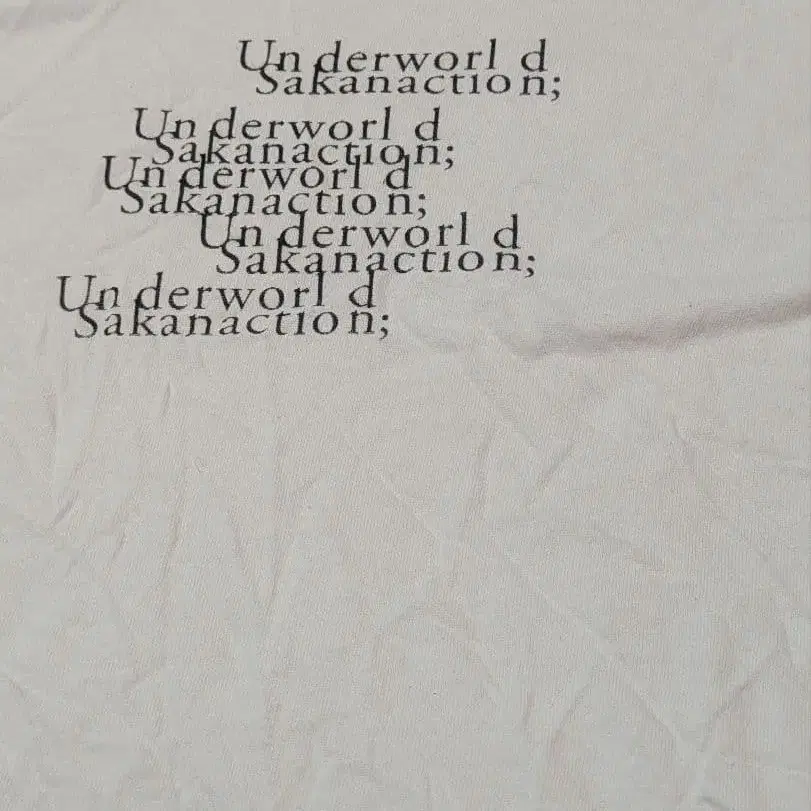 Un derworl d
Sakanaction;
Un derworl d
Sakanaction;
Un derworl d
Sakanaction;
Un derworl d
Sakanaction;
Un derworl d
Sakanaction;